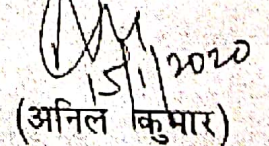 15/1/2020
(अनिल कुमार)